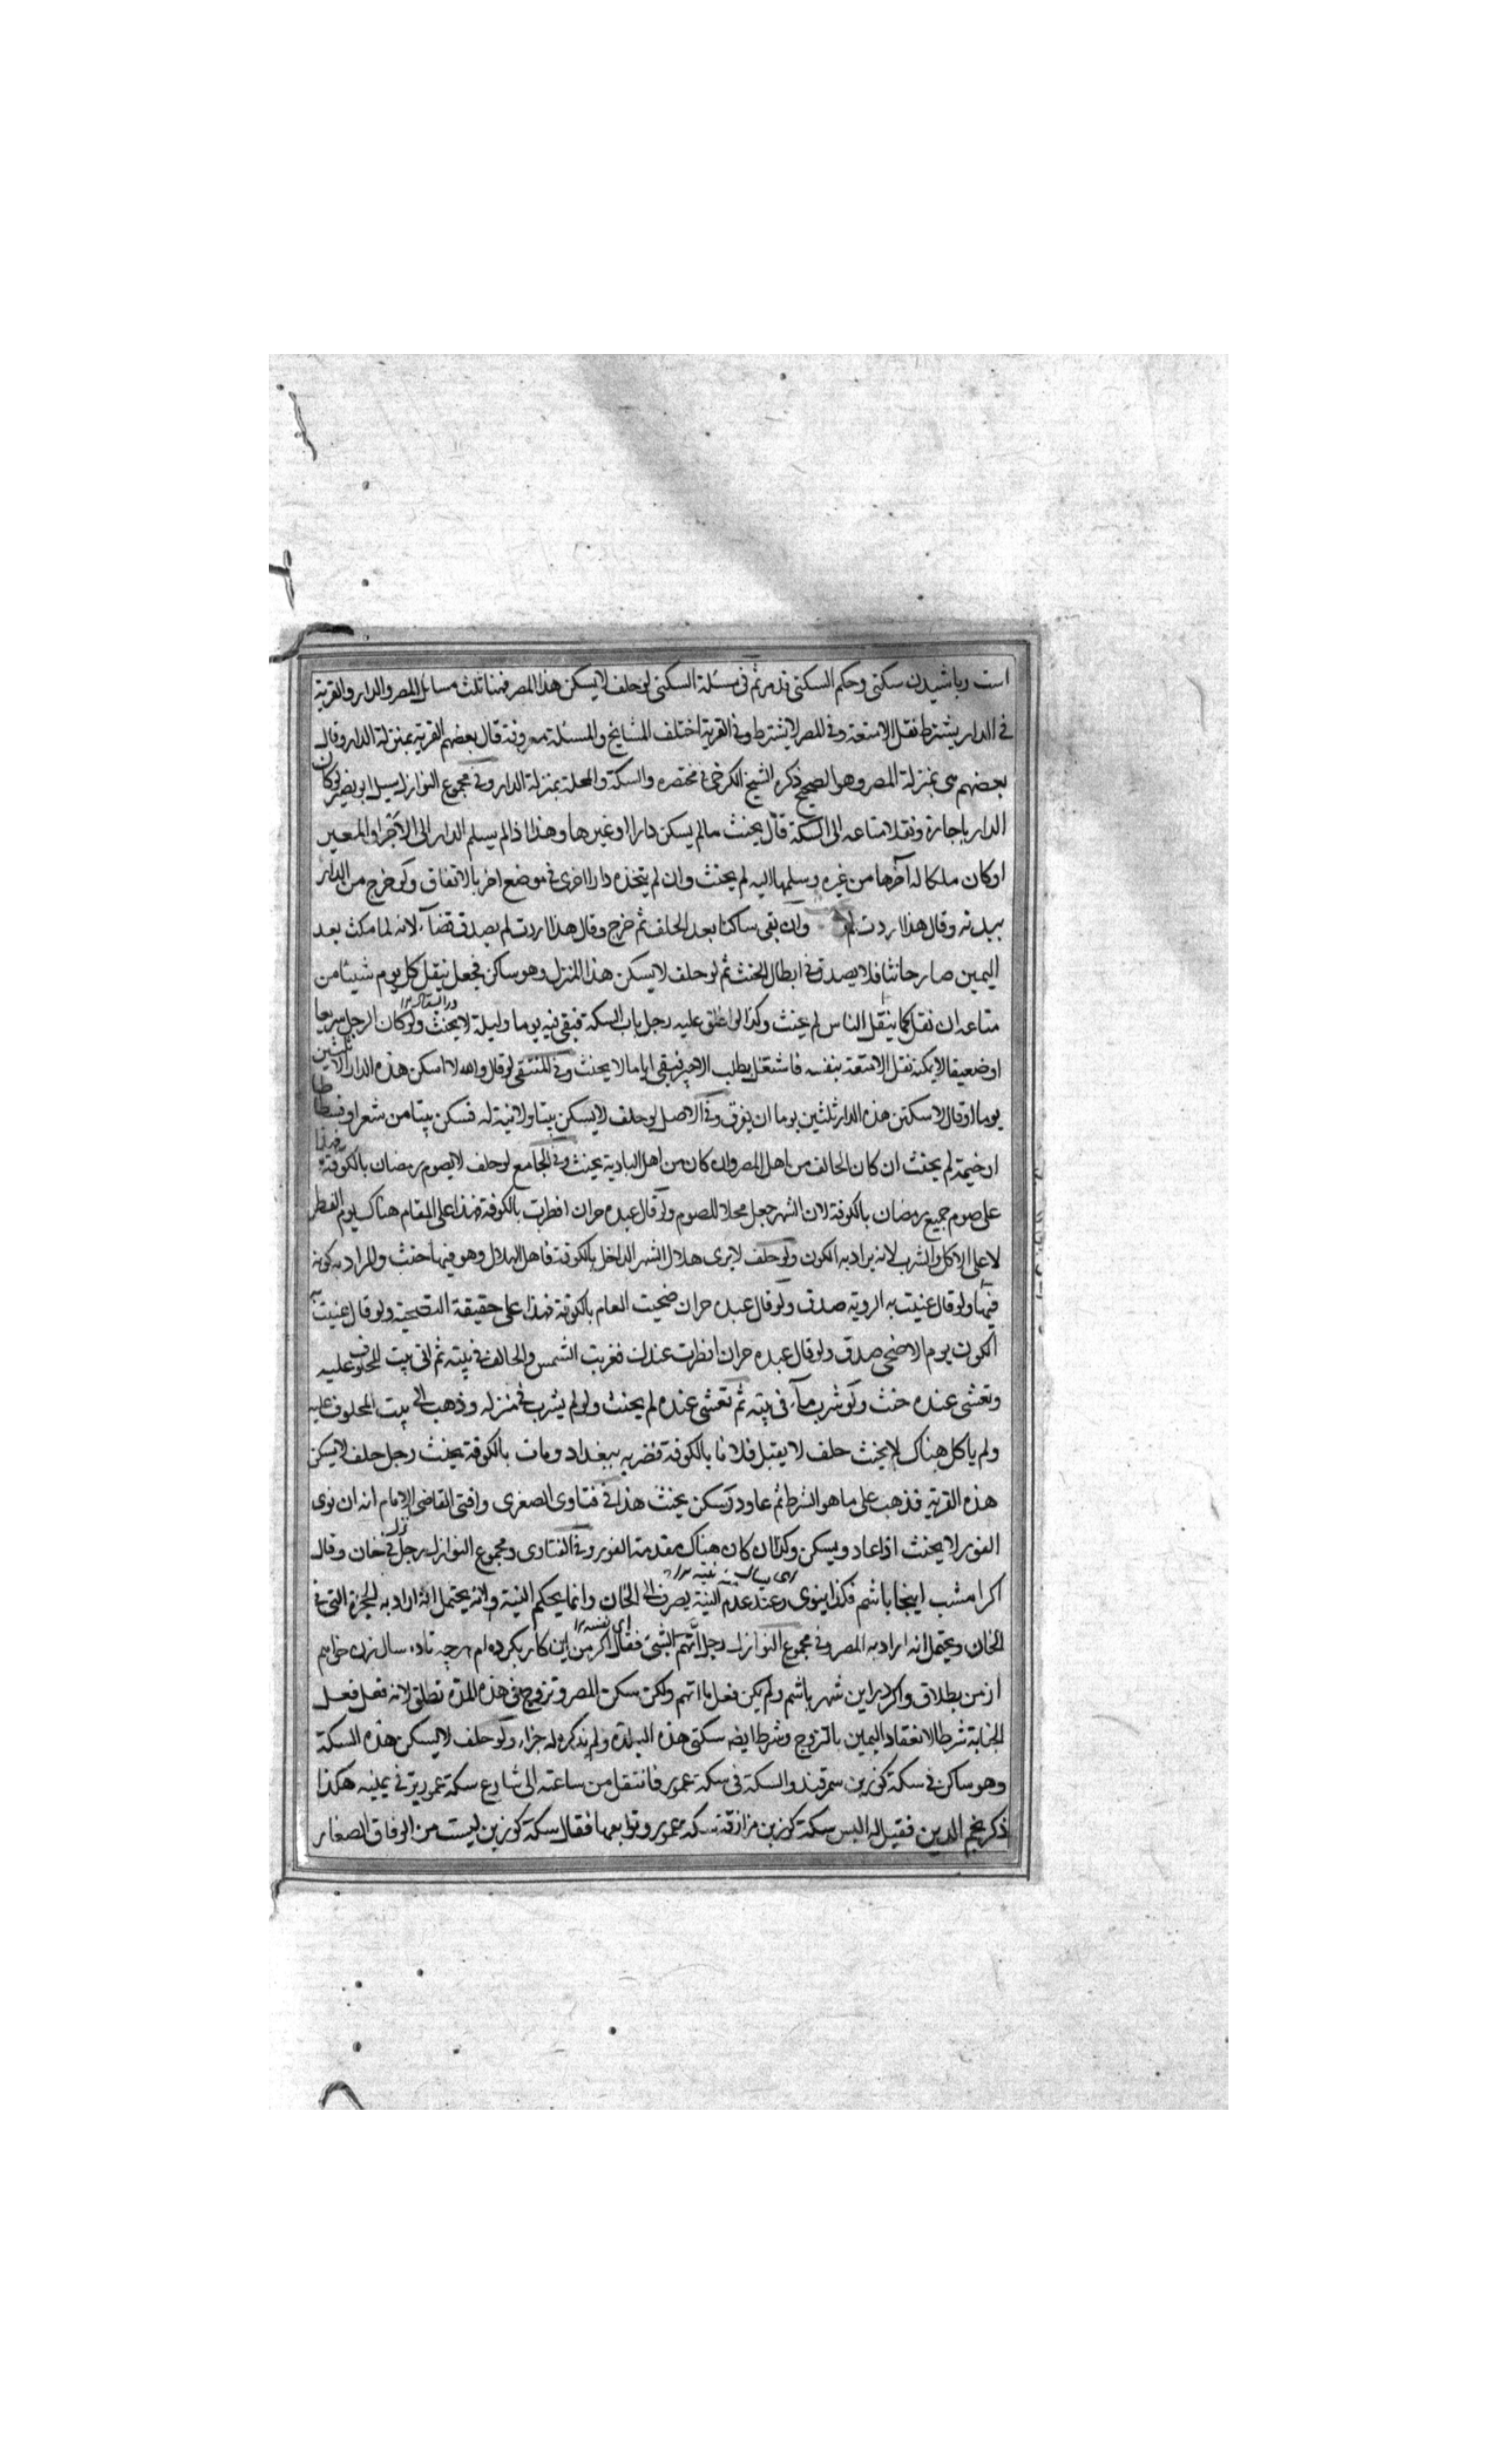 است وباشيدن سكنى وحكم السكنى قد مر ثم فى مسئلة السكنى لو حلف لا يسكن هذا المصر فهنا ثلث مسايل المصر والدار والقرية
فى الدار يشترط نقل الامتعة وفى المصر لا يشترط وفى القرية اختلف المشايخ والمسئلة معروفة قال بعضهم القرية بمنزلة الدار وقال
بعضهم هى بمنزلة المصر وهو الصحيح ذكره الشيخ الكرخى فى مختصره والسكة والمحلة بمنزلة الدار وفى مجموع النوازل سيل ابو نصر لو كان
الدار باجارة ونقل امتاعه الى السكة قال يحنث مالم يسكن دارا او غيرها وهذا اذا لم يسلم الدار الى الآجر او المعير
او كان ملكا له آجرها من غيره وسلمها اليه لم يحنث وان لم يتخذه دارا اخرى فى موضع اخر بالاتفاق ولو خرج من الدار
ببدنه وقال هذا اردت لم وان بقى ساكنا بعد الحلف ثم خرج وقال هذا اردت لم يصدق قضآء لانه لما مكث بعد
اليمين صار حانثا فلا يصدق فى ابطال الحنث ثم لو حلف لا يسكن هذا المنزل وهو ساكن فجعل ينقل كل يوم شيئا من
متاعه ان نقل كما ينقل الناس لم يحنث وكذا لو اغلق عليه رجل باب السكة فبقى فيه يوما وليلة لا يحنث ولو كان الرجل
او ضعيفا لا يمكنه نقل الامتعة بنفسه فاشتغل بطلب الاجير فبقى اياما لا يحنث وفى المنتقى لو قال والله لا اسكن هذه الدار الا ثلثين
يوما او قال لاسكنن هذه الدار ثلثين يوما ان يفرق وفى الاصل لو حلف لا يسكن بيتا ولا نية له فسكن بيتا من شعر او فسطاطا
او خيمة لم يحنث ان كان الحالف من اهل المصر وان كان من اهل البادية يحنث وفى الجامع لو حلف لا يصوم رمضان بالكوفة فهذا
على صوم جميع رمضان بالكوفة لان الشهر جعل محلا للصوم ولو قال عبده حر ان افطرت بالكوفة فهذا على المقام هناك يوم الفطر
لا على الاكل والشرب لانه يراد به الكون ولو حلف لا يرى هلال الشهر الداخل بالكوفة فاهل الهلال وهو فيها حنث والمراد به كونه
فيها ولو قال عنيت به الروية صدق ولو قال عبده حر ان ضحيت العام بالكوفة فهذا على حقيقة التضحية ولو قال عنيت به
الكون يوم الاضحى صدق ولو قال عبده حر ان افطرت عندك فغربت الشمس والحالف فى بيته ثم اتى بيت المحلوف عليه
وتعشى عنده حنث ولو شرب مآء فى بيته ثم تعشى عنده لم يحنث ولو لم يشرب فى منزله وذهب الى بيت المحلوف عليه
ولم ياكل هناك لا يحنث حلف لا يقتل فلانا بالكوفة فضربه ببغداد ومات بالكوفة يحنث رجل حلف لا يسكن
هذه القرية فذهب على ما هو الشرط ثم عاود وسكن يحنث هذا فى فتاوى الصغرى وافتى القاضى الامام انه ان نوى
الفور لا يحنث اذا عاد ويسكن وكذا ان كان هناك مقدمة الفور وفى الفتاوى ومجموع النوازل رجل نزل فى خان وقال
اكر امشب اينجا باشم فكذا ينوى وعند عدم النية يصرف الى الخان وانما يحكم النية لانه يحتمل انه اراد به الحجرة التى فى
الخان ويحتمل انه اراد به المصر وفى مجموع النوازل رجل اتهم بشئ فقال اكر من اين كار بكرده ام هرچه تا ده سال زن خواهم
از من بطلاق واكر در اين شهر باشم ولم يكن فعل ما اتهم ولكن سكن المصر وتزوج فى هذه المدة تطلق لانه فعل
الجناية شرطا لانعقاد اليمين بالتزوج وشرط ايضه سكنى هذه البلدة ولم يذكر له جزاء ولو حلف لا يسكن هذه السكة
وهو ساكن فى سكة سمرقند والسكة فى سكة عمور فانتقل من ساعته الى شارع سكة عمور فى يمينه هكذا
ذكر نجم الدين فقيل له اليس سكة كوزين من ازقة سكه عمور وتوابعها فقال سكة كوزين ليست من الصغار